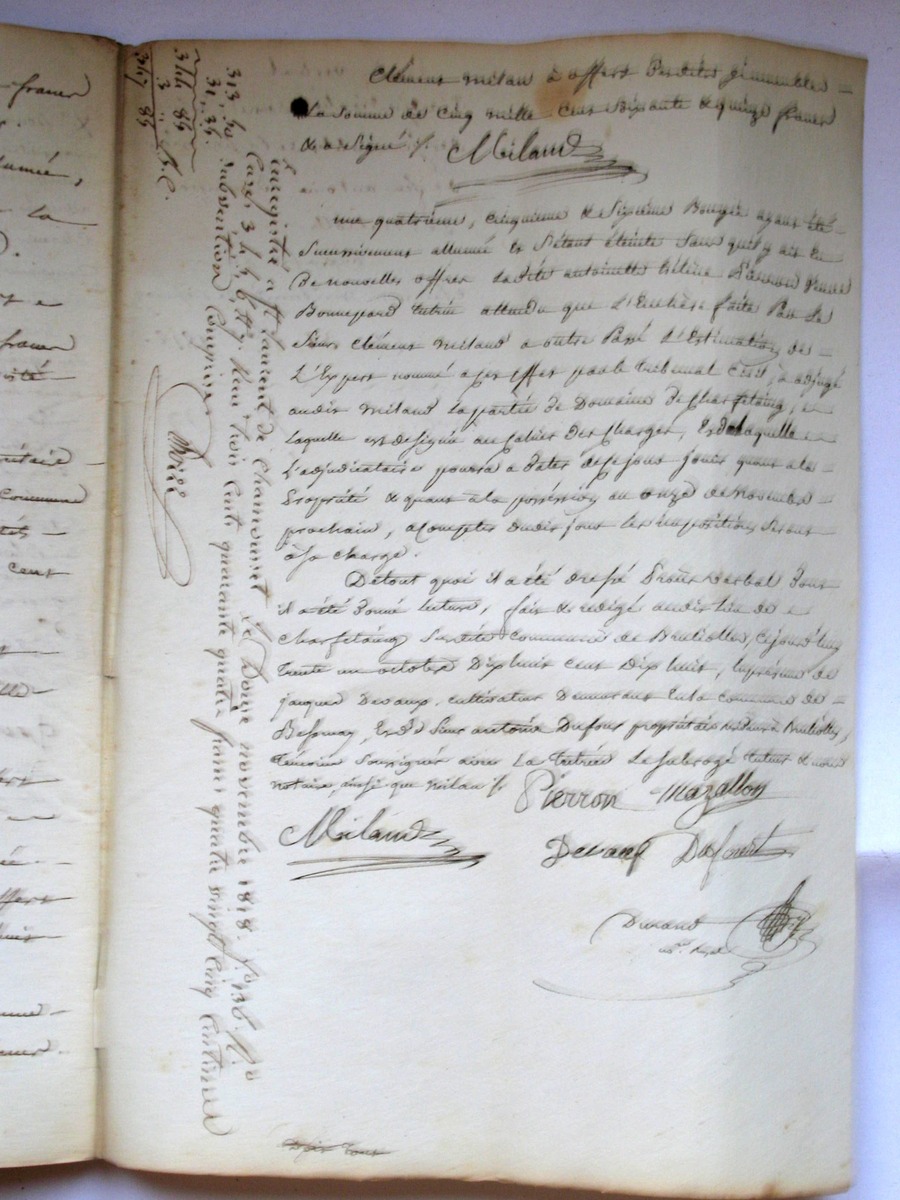 Clément Milan a offert desdits immeubles
la somme de Cinq mille Cent Soixante & quinze francs
& a Signé /. Miland
une quatrième, cinquième & Sixième Bougie ayant été
Successivement allumée & S'étant éteinte Sans qu'il y ait eu
De nouvelles offres Ladite antoinette hélène Pierron Veuve
tutrice attendu que L'Enchère faite Par Le
Sieur Clément Miland a outre Passé L'Estimation de
L'Expert nommé a cet effet par le Tribunal Civil, a adjugé
audit Miland La partie de Domaine De Charfetain,
laquelle est designée au Cahier Des Charges, & de laquelle
L'adjudicataire pourra a Dater de ce jour jouir quant a la
Propriété & quant à la possession au onze de Novembre
prochain, a Compter dudit jour les impositions Seront
à sa charge.
De tout quoi il a été dressé Procès verbal Dont
il a été Donné lecture, fait & redigé audit lieu de
Charfetain Susdite Commune de Brullioles, Cejourd'huy
trente un octobre Dix huit cent Dix huit, En présence de
jacques Devaux, cultivateur Demeurant En la Commune de
Bessenay, & de Sieur antoine Dufour propriétaire à Brullioles,
témoins Soussignés avec La tutrice Le Subrogé tuteur & nous
notaire ainsi que Milan /.
Pierron Mazallon
Miland
Devaux Dufour
Durand
Enregistré a St Laurent de Chamousset Le Douze novembre 1818. fo 136 Vo
Reçu trois Cents quarante quatre francs quatre vingt Cinq Centimes
Subvention Comprise
313. 50
31. 35
344 85
3
347 85